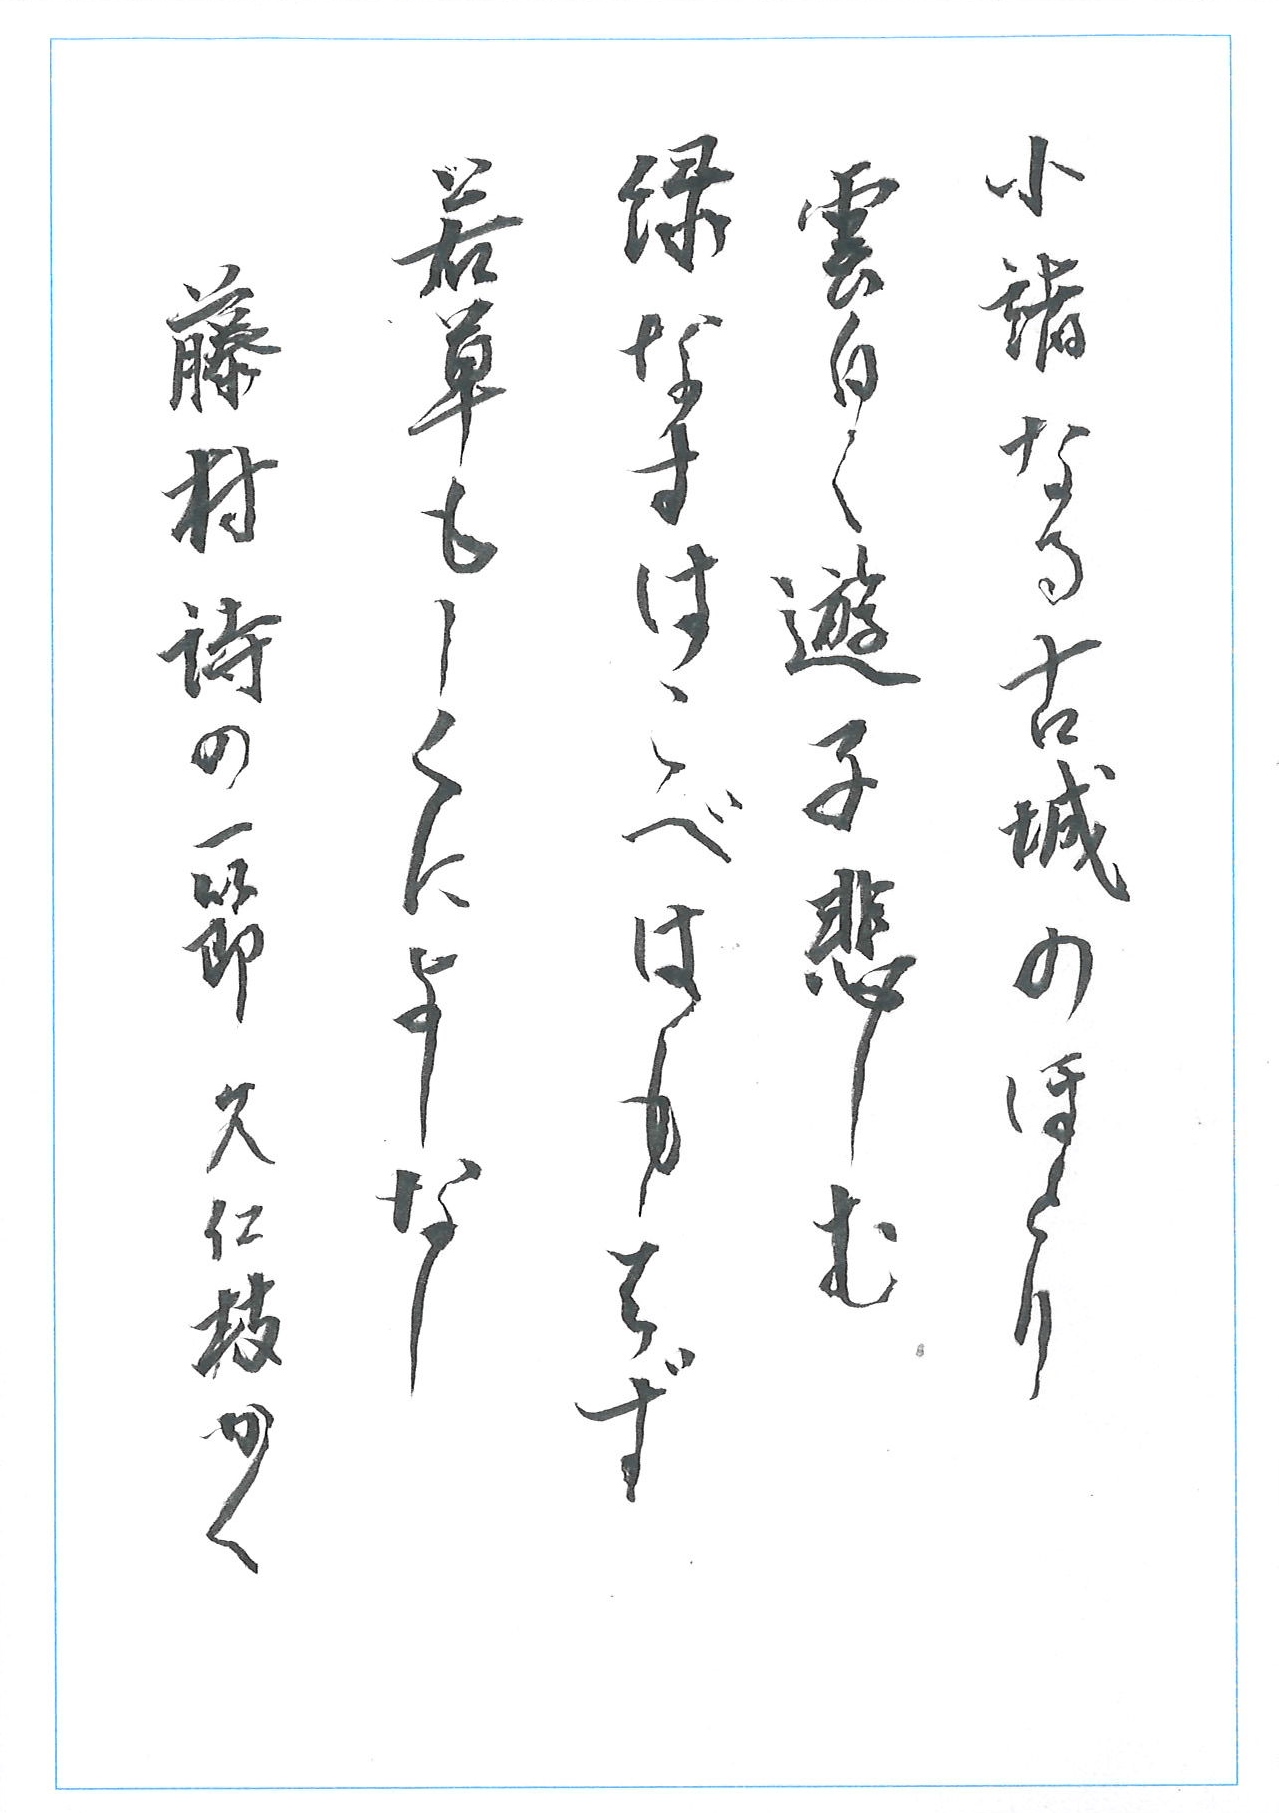 小諸なる古城のほとり
雲白く遊子悲しむ
緑なすはこべはもえず
若草もしくによしなし
藤村詩の一節 久仁枝かく